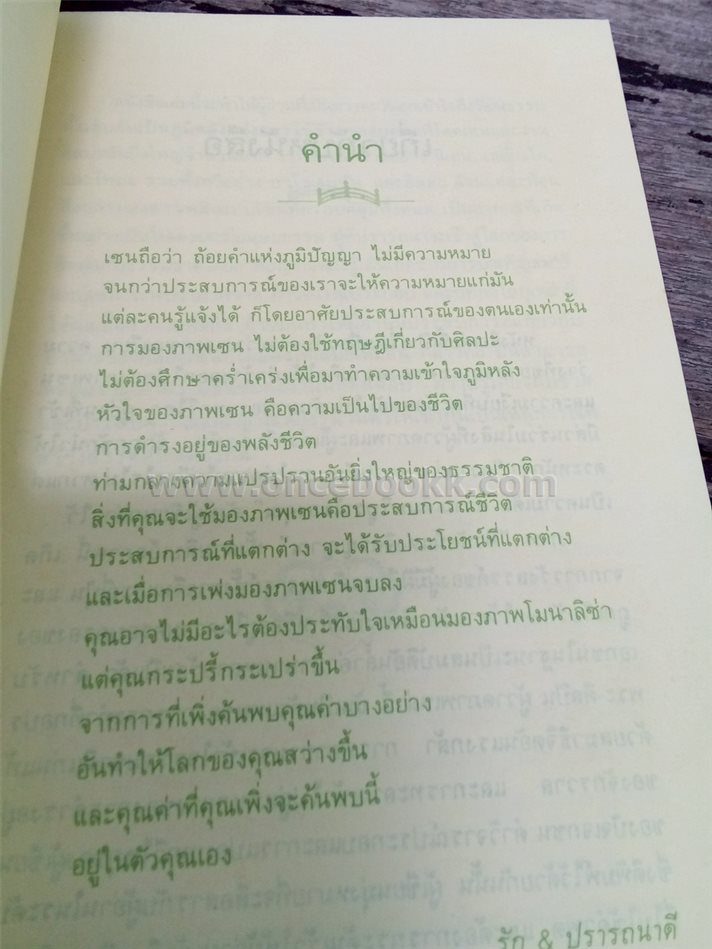 คำนำ
เซนถือว่า ถ้อยคำแห่งภูมิปัญญา ไม่มีความหมาย
จนกว่าประสบการณ์ของเราจะให้ความหมายแก่มัน
แต่ละคนรู้แจ้งได้ ก็โดยอาศัยประสบการณ์ของตนเองเท่านั้น
การมองภาพเซน ไม่ต้องใช้ทฤษฎีเกี่ยวกับศิลปะ
ไม่ต้องศึกษาคร่ำเคร่งเพื่อมาทำความเข้าใจภูมิหลัง
หัวใจของภาพเซน คือความเป็นไปของชีวิต
การดำรงอยู่ของพลังชีวิต
ท่ามกลางความแปรปรวนอันยิ่งใหญ่ของธรรมชาติ
www.oncebookk.com
สิ่งที่คุณจะใช้มองภาพเซนคือประสบการณ์ชีวิต
ประสบการณ์ที่แตกต่าง จะได้รับประโยชน์ที่แตกต่าง
และเมื่อการเพ่งมองภาพเซนจบลง
คุณอาจไม่มีอะไรต้องประทับใจเหมือนมองภาพโมนาลิซ่า
แต่คุณกระปรี้กระเปร่าขึ้น
จากการที่เพิ่งค้นพบคุณค่าบางอย่าง
อันทำให้โลกของคุณสว่างขึ้น
และคุณค่าที่คุณเพิ่งจะค้นพบนี้
อยู่ในตัวคุณเอง
รัก & ปรารถนาดี